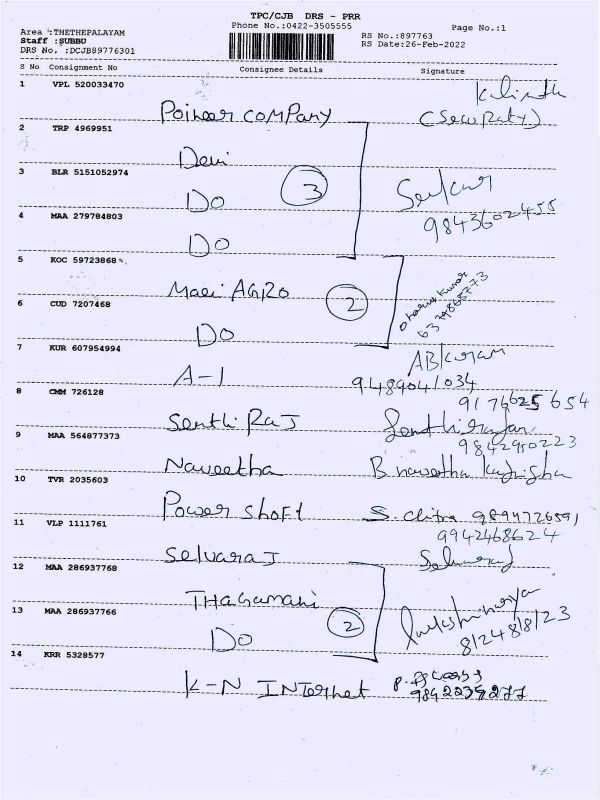 TPC/CJB DRS - PRR
Area :THETHEPALAYAM Phone No.:0422-3505555 Page No.:1
Staff :SUBBU RS No.:897763
DRS No. :DCJB89776301 RS Date:26-Feb-2022
S No Consignment No Consignee Details Signature
1 VPL 520033470
Poineer COMPany (Security)
2 TRP 4969951
Devi
3 BLR 5151052974
Do 3 Senkar
4 MAA 279784803 9843602455
Do
5 KOC 59723868
Maei AGRO 2 Dharus Kumar
6 CUD 7207468 6374868773
Do
7 KUR 607954994
A-1 9489041034
8 CMM 726128 9176625654
Senthi RaJ Senthirajan
9 MAA 564877373 9842950223
Naveetha B naveetha
10 TVR 2035603
Power Shoft S. Chitra 9894726591
11 VLP 1111761 9942468624
SelvaraJ Selvaraj
12 MAA 286937768
THaGamani
13 MAA 286937766 2
Do 8124818123
14 KRR 5328577
K-N INTerhet 9842239277